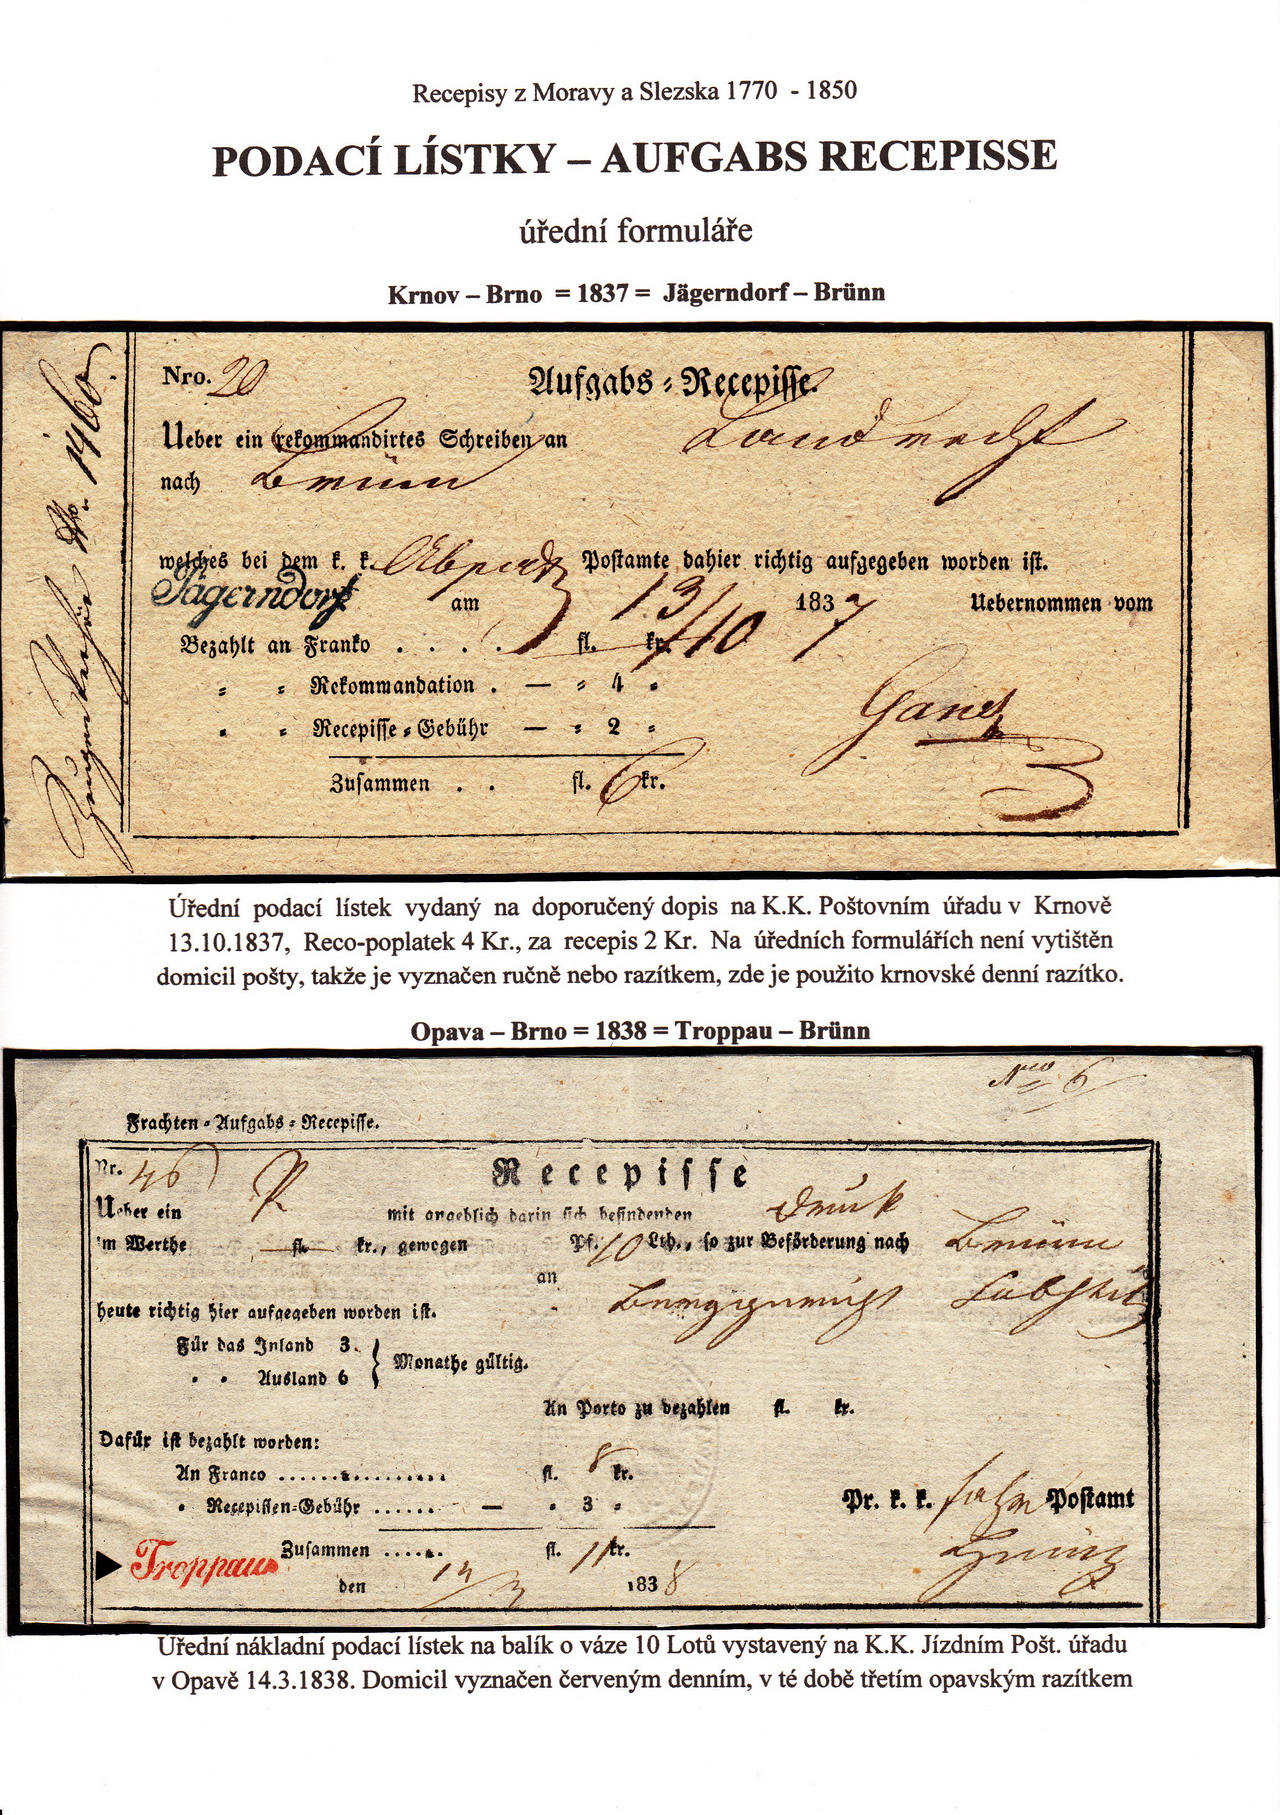 Recepisy z Moravy a Slezska 1770 - 1850
PODACÍ LÍSTKY – AUFGABS RECEPISSE
úřední formuláře
Krnov – Brno = 1837 = Jägerndorf – Brünn
Nro. 20 Aufgabs = Recepisse.
Ueber ein rekommandirtes Schreiben an Landrecht
nach Brünn
welches bei dem k. k. Postamte dahier richtig aufgegeben worden ist.
Jägerndorf am 13/10 1837 Uebernommen vom
Bezahlt an Franko . . . . fl. kr.
= = Rekommandation . — = 4 =
= = Recepisse = Gebühr — = 2 =
Zusammen . . fl. 6 kr.
No. 1460.
Úřední podací lístek vydaný na doporučený dopis na K.K. Poštovním úřadu v Krnově
13.10.1837, Reco-poplatek 4 Kr., za recepis 2 Kr. Na úředních formulářích není vytištěn
domicil pošty, takže je vyznačen ručně nebo razítkem, zde je použito krnovské denní razítko.
Opava – Brno = 1838 = Troppau – Brünn
Nro 6
Frachten = Aufgabs = Recepisse.
Nr. 46 Recepisse
Ueber ein P. mit angeblich darin sich befindenden Druk
im Werthe fl. kr., gewogen Pf. 10 Lth., so zur Beförderung nach Brünn
an
heute richtig hier aufgegeben worden ist.
Für das Inland 3.
Monathe gültig.
" " Ausland 6
An Porto zu bezahlen fl. kr.
Dafür ist bezahlt worden:
An Franco .................. fl. 8 kr.
" Recepissen-Gebühr ...... — " 3 "
Pr. k. k. fahr Postamt
Zusammen ...... fl. 11 kr.
Troppau
den 14/3 1838
Úřední nákladní podací lístek na balík o váze 10 Lotů vystavený na K.K. Jízdním Pošt. úřadu
v Opavě 14.3.1838. Domicil vyznačen červeným denním, v té době třetím opavským razítkem